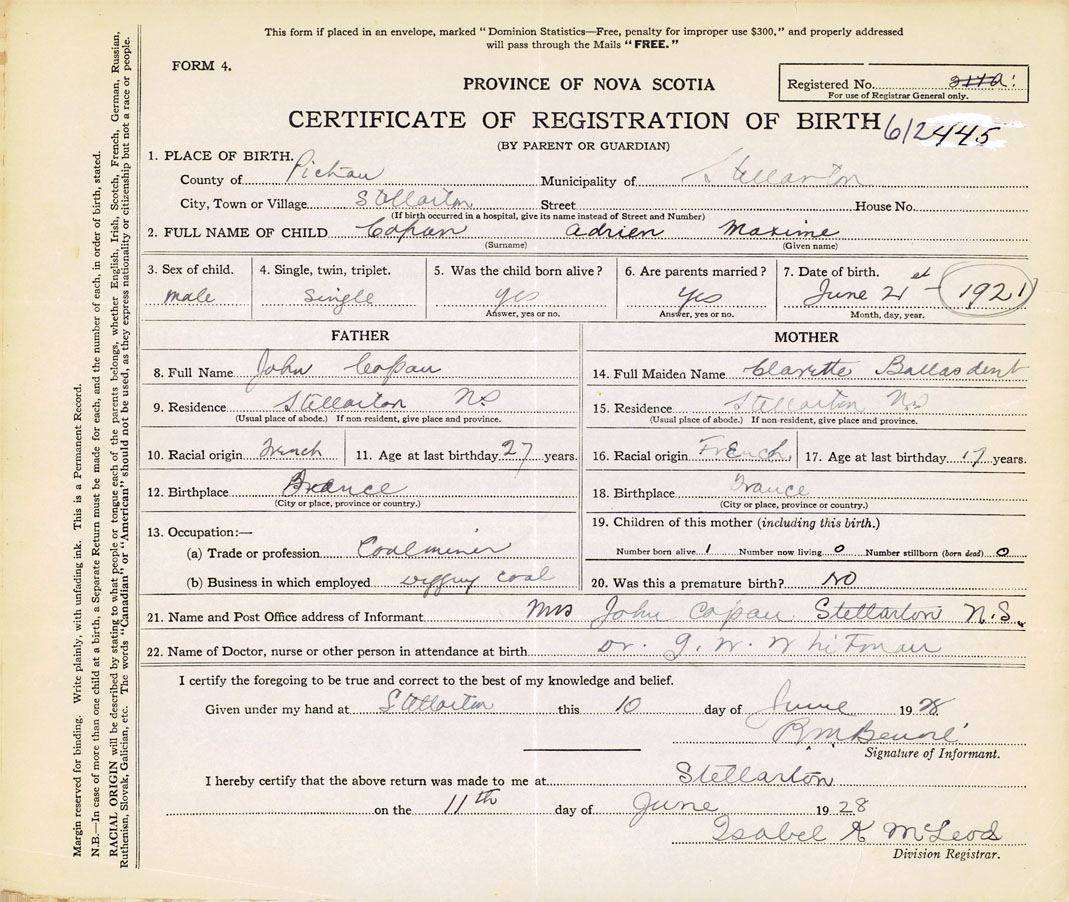 This form if placed in an envelope, marked "Dominion Statistics—Free, penalty for improper use $300," and properly addressed
will pass through the Mails "FREE."
FORM 4.
PROVINCE OF NOVA SCOTIA
Registered No.
For use of Registrar General only.
CERTIFICATE OF REGISTRATION OF BIRTH 612445
(BY PARENT OR GUARDIAN)
1. PLACE OF BIRTH.
County of Pictou Municipality of Stellarton
City, Town or Village Stellarton Street House No.
(If birth occurred in a hospital, give its name instead of Street and Number)
2. FULL NAME OF CHILD Copan Adrien Maxime
(Surname) (Given name)
3. Sex of child. 4. Single, twin, triplet. 5. Was the child born alive? 6. Are parents married? 7. Date of birth.
male Single yes yes June 21st - 1921
Answer, yes or no. Answer, yes or no. Month, day, year.
FATHER
8. Full Name John Copan
9. Residence Stellarton NS
(Usual place of abode.) If non-resident, give place and province.
10. Racial origin French 11. Age at last birthday 27 years.
12. Birthplace France
(City or place, province or country.)
13. Occupation:—
(a) Trade or profession Coalminer
(b) Business in which employed digging coal
MOTHER
14. Full Maiden Name Clarette Ballasdent
15. Residence Stellarton NS
(Usual place of abode.) If non-resident, give place and province.
16. Racial origin French 17. Age at last birthday 17 years.
18. Birthplace France
(City or place, province or country.)
19. Children of this mother (including this birth.)
Number born alive 1 Number now living 0 Number stillborn (born dead) 0
20. Was this a premature birth? NO
21. Name and Post Office address of Informant Mrs John Copan Stellarton N.S.
22. Name of Doctor, nurse or other person in attendance at birth Dr. G. W. Whitman
I certify the foregoing to be true and correct to the best of my knowledge and belief.
Given under my hand at Stellarton this 10 day of June 1928
R M
Signature of Informant.
I hereby certify that the above return was made to me at Stellarton
on the 11th day of June 1928
Isabel K McLeod
Division Registrar.
Margin reserved for binding. Write plainly, with unfading ink. This is a Permanent Record.
N.B.—In case of more than one child at a birth, a Separate Return must be made for each, and the number of each, in order of birth, stated.
RACIAL ORIGIN will be described by stating to what people or tongue each of the parents belongs, whether English, Irish, Scotch, French, German, Russian,
Ruthenian, Slovak, Galician, etc. The words "Canadian" or "American" should not be used, as they express nationality or citizenship but not a race or people.